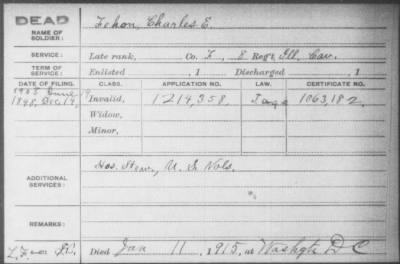 DEAD
NAME OF SOLDIER:
Fehon, Charles E.
SERVICE:
Late rank, Co. F, 8 Regt. Ill. Cav.
TERM OF SERVICE:
Enlisted , 1 Discharged , 1
DATE OF FILING. CLASS. APPLICATION NO. LAW. CERTIFICATE NO.
1908 June 19
1898, Dec. 19, Invalid, 1214,358, 1063,182,
Widow,
Minor,
ADDITIONAL SERVICES:
Hos. Stew., U. S. Vols.
REMARKS:
Died Jan 11, 1915, at Washgtn D C